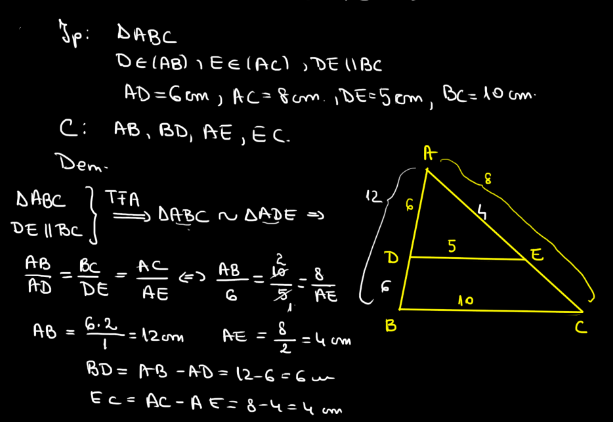 Ip: ΔABC
D∈(AB), E∈(AC), DE∥BC
AD=6cm, AC=8cm, DE=5cm, BC=10cm.
C: AB, BD, AE, EC.
Dem.
ΔABC
DE∥BC } TFA ⟹ ΔABC ~ ΔADE ⇒
AB/AD = BC/DE = AC/AE ⇔ AB/6 = 10/5 = 8/AE
2
1
AB = 6·2/1 = 12cm AE = 8/2 = 4cm
BD = AB - AD = 12-6 = 6cm
EC = AC - AE = 8-4 = 4cm
A
12
8
6
4
D
5
E
6
10
B
C